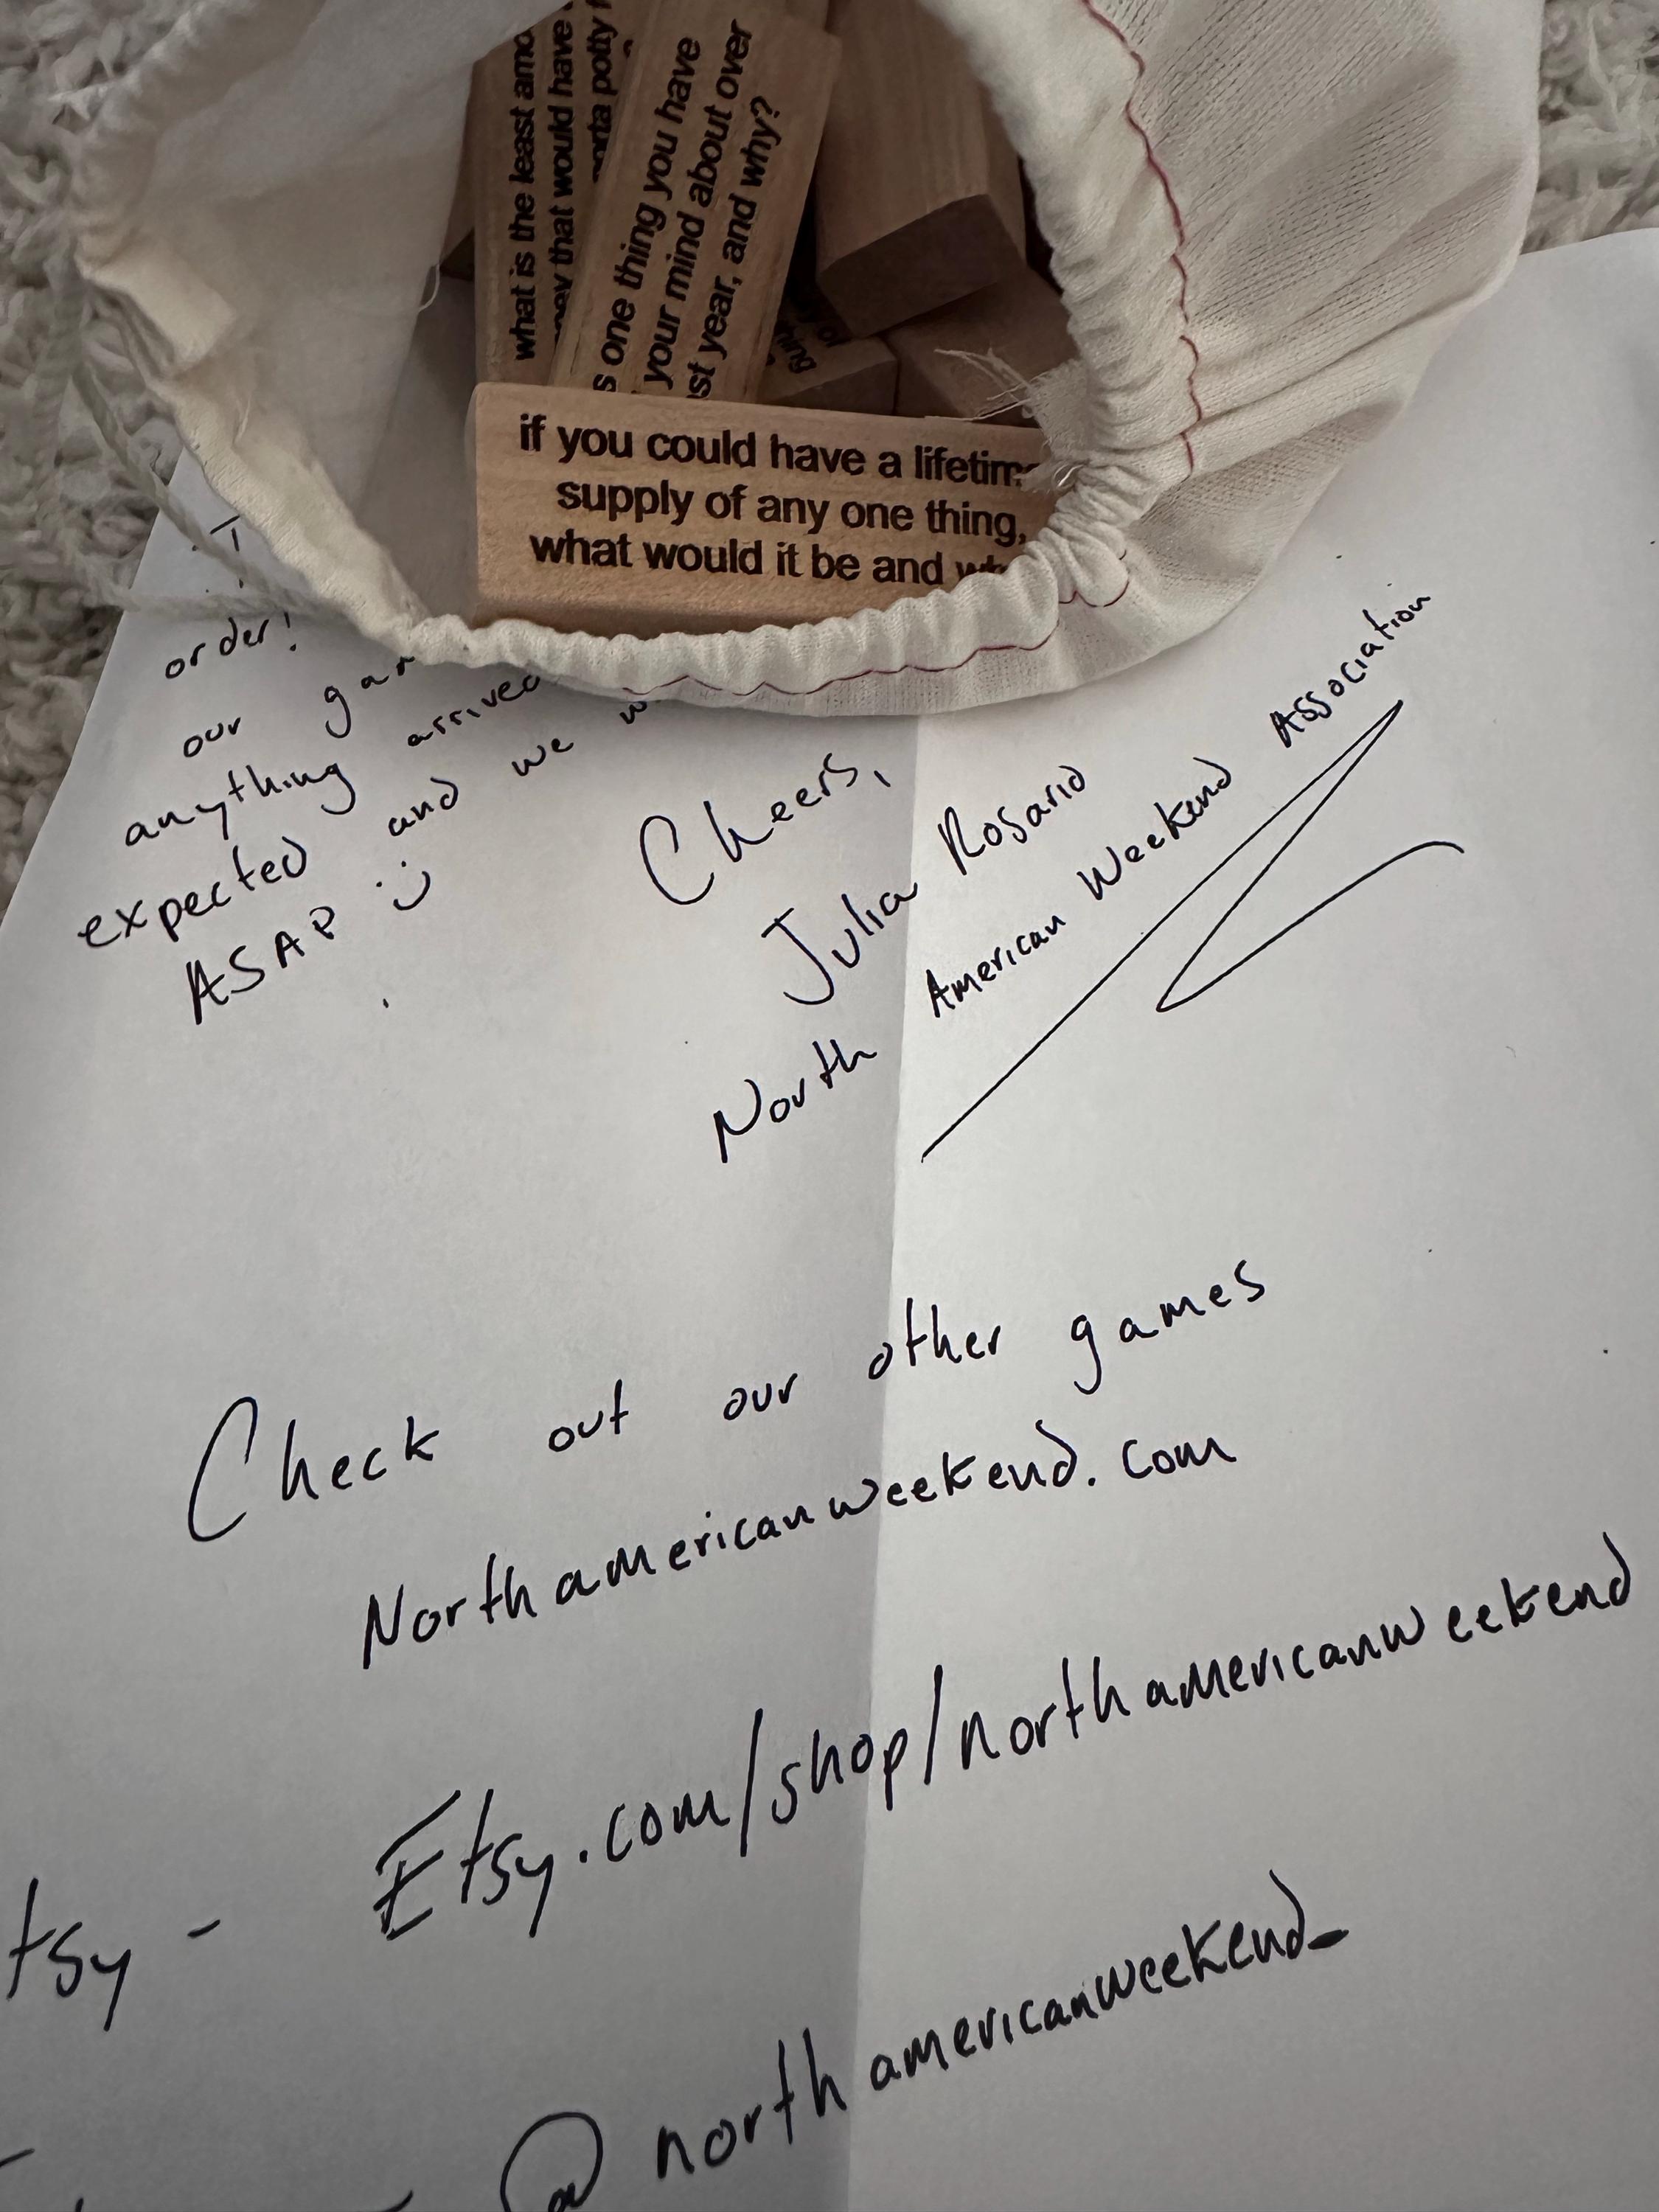 what is the least
that would have
porta potty
one thing you have
your mind about over
year, and why?
if you could have a
supply of any one thing,
what would it be and
order!
our
anything arrived
expected and we
ASAP :)
Cheers,
Julia Rosario
North American Weekend Association
Check out our other games
Northamericanweekend.com
Etsy.com/shop/northamericanweekend
@northamericanweekend_